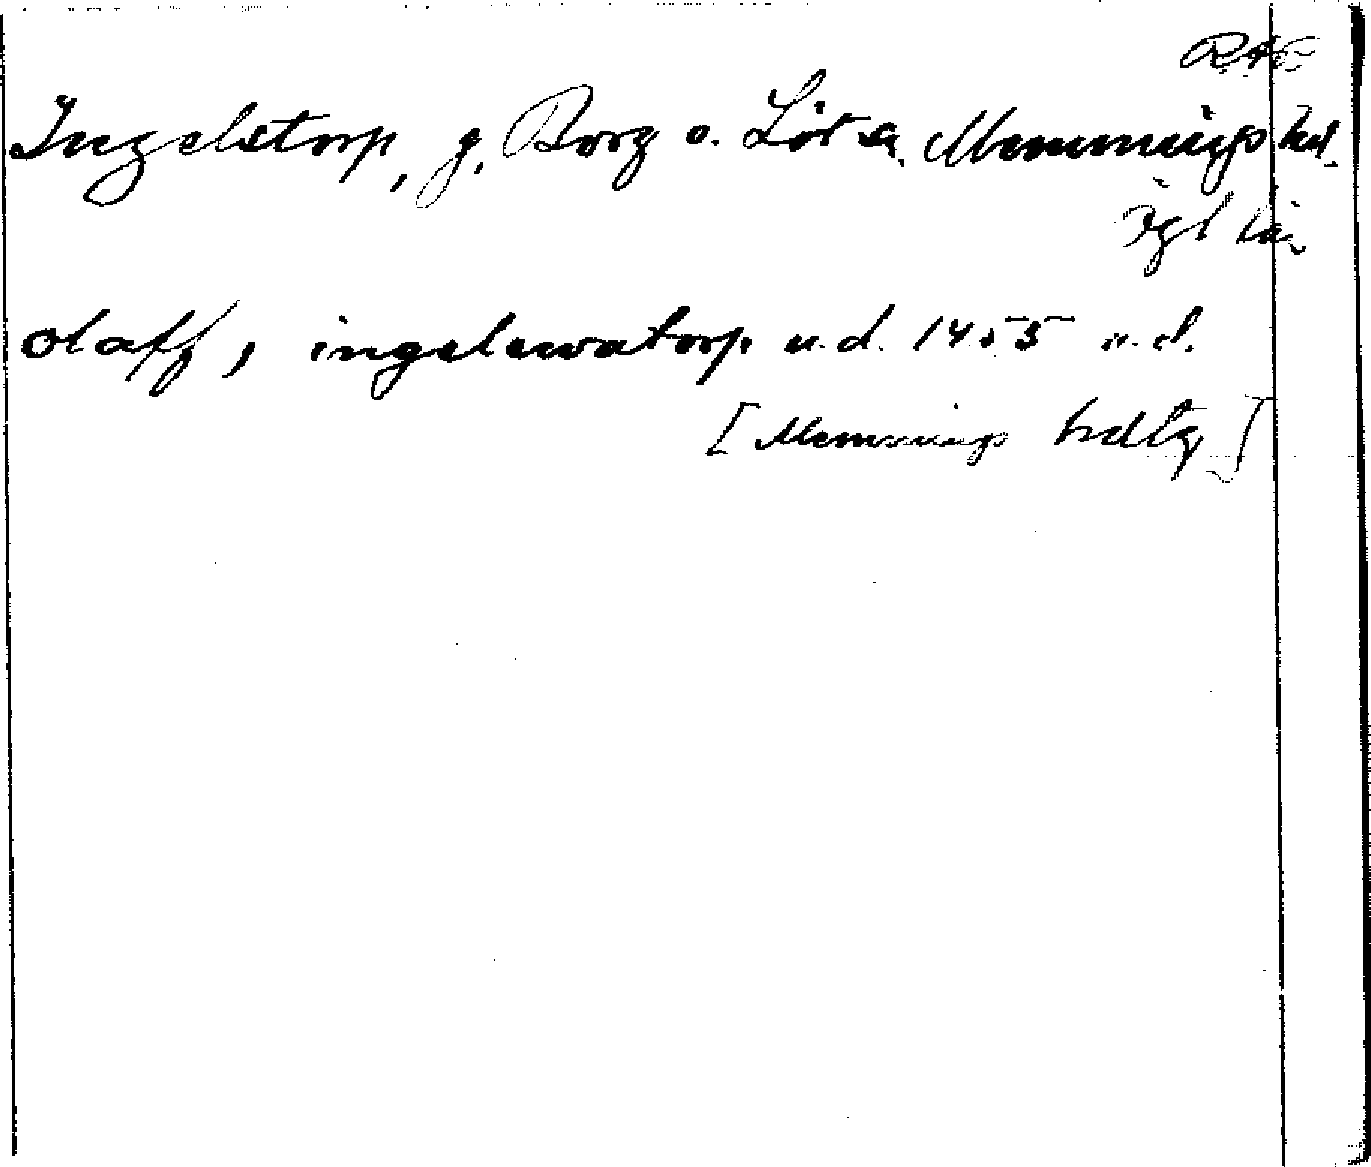 RAP
Ingelstorp, g. Borg o. Löt sn. Memmings hd.
Ögl län
olaff, ingelewatorp u.d. 1455 u.d.
[Memmings hdtg]